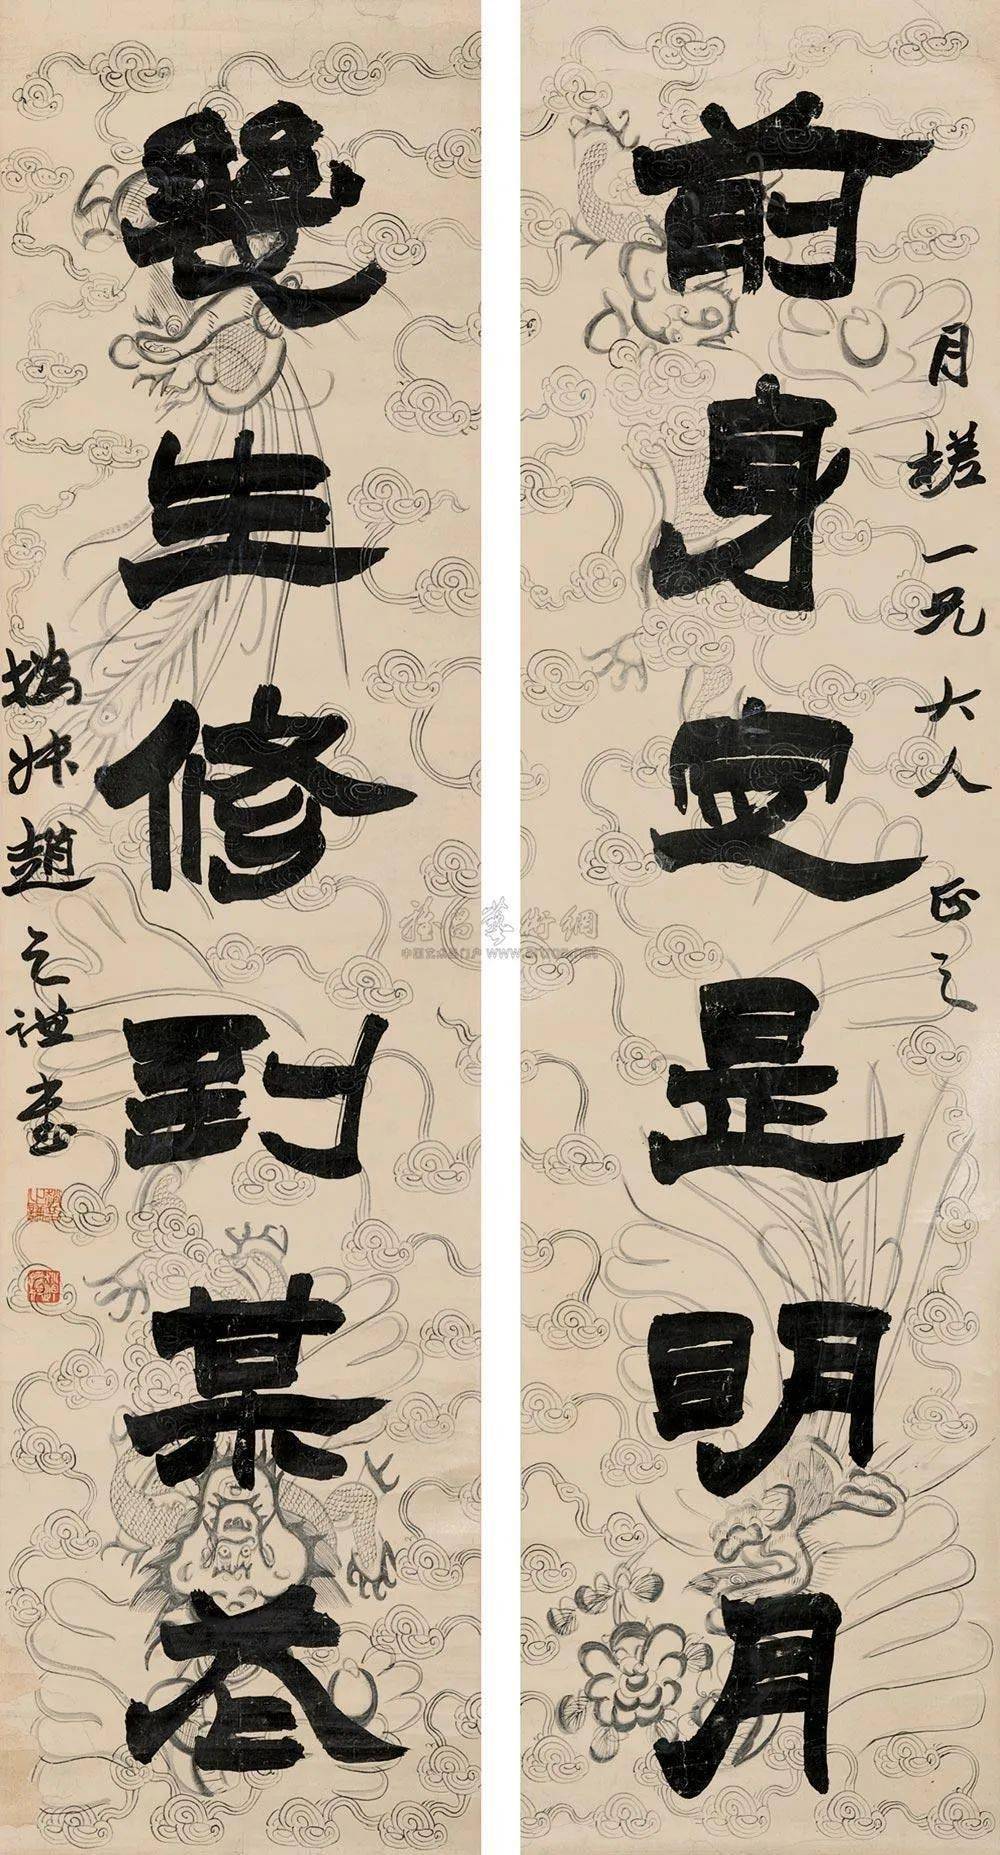 前身定是明月
月槎一兄大人正之
幾生修到某
撝叔趙之謙書
雅昌藝術網